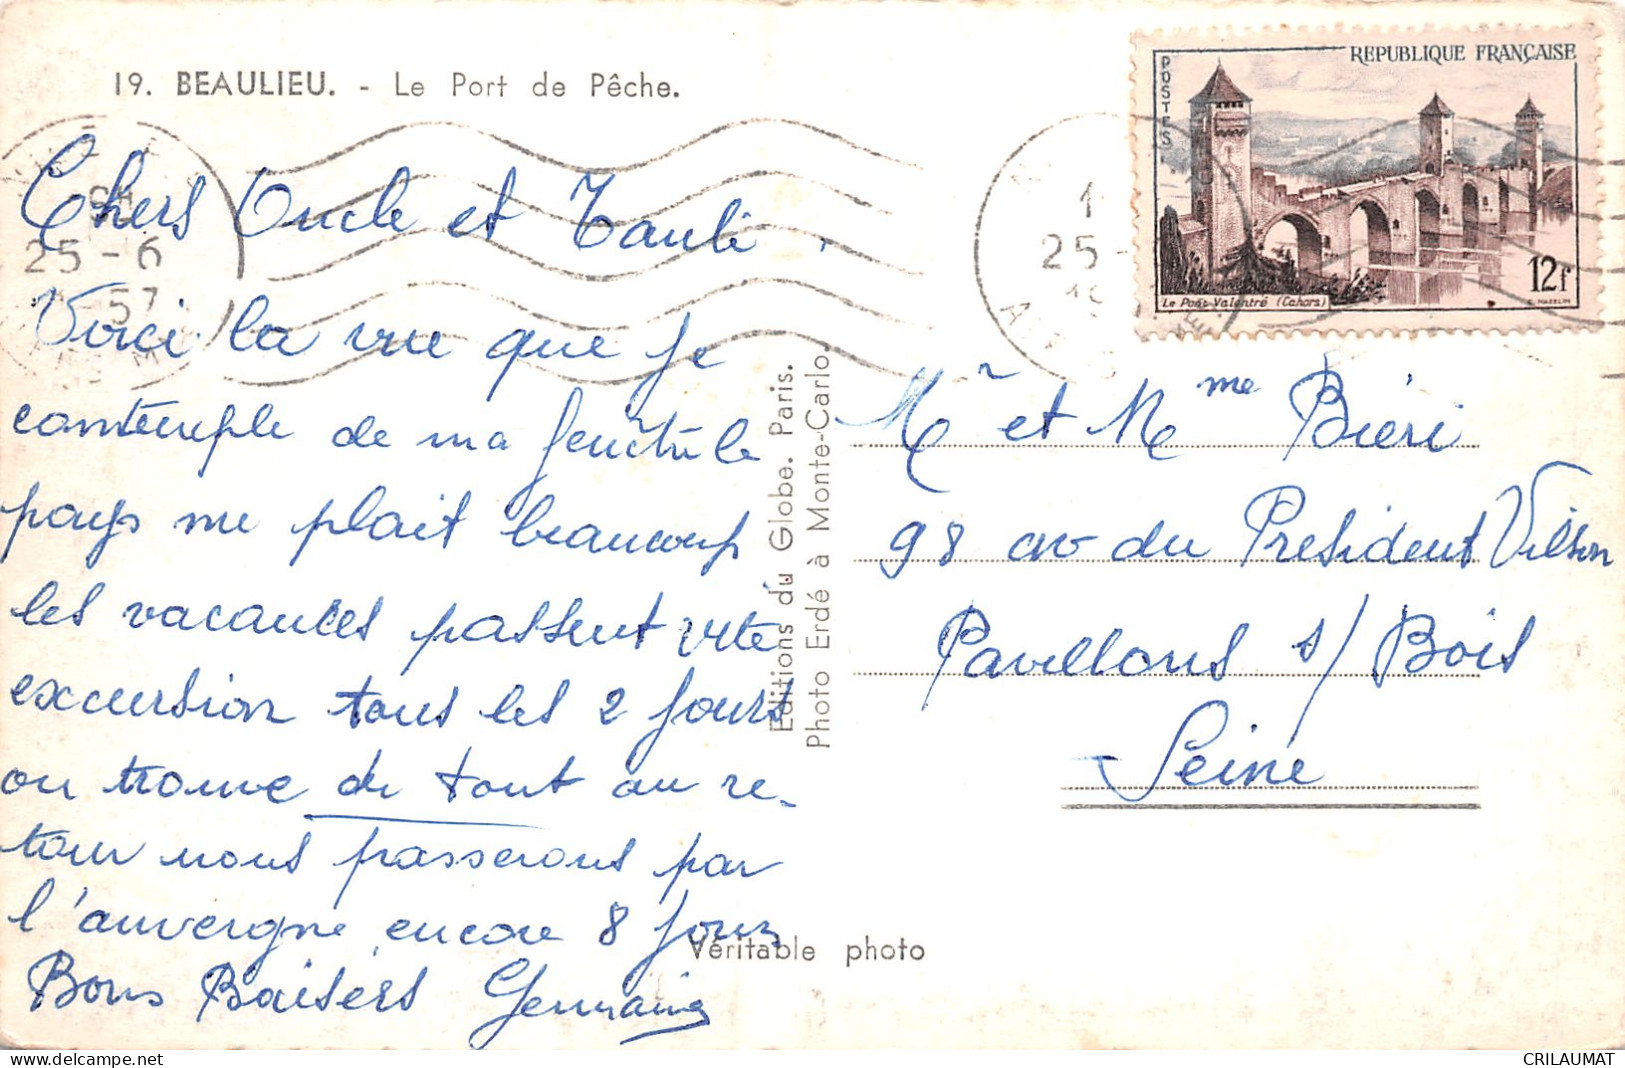 19. BEAULIEU. - Le Port de Pêche.
Chers Oncle et Tante
Voici la vue que je
contemple de ma fenêtre le
pays me plait beaucoup
les vacances passent vite
excursion tous les 2 jours
on trouve de tout au re-
tour nous passerons par
l'auvergne encore 8 jours
Bons Baisers Germaine
25-6
57
Editions du Globe. Paris.
Photo Erdé à Monte-Carlo.
Véritable photo
REPUBLIQUE FRANÇAISE
POSTES
12f
Le Pont Valentré (Cahors)
C. MAZELIN
25-
Mr et Mme Biéri
98 av du President Wilson
Pavillons s/ Bois
Seine
delcampe.net
CRILAUMAT